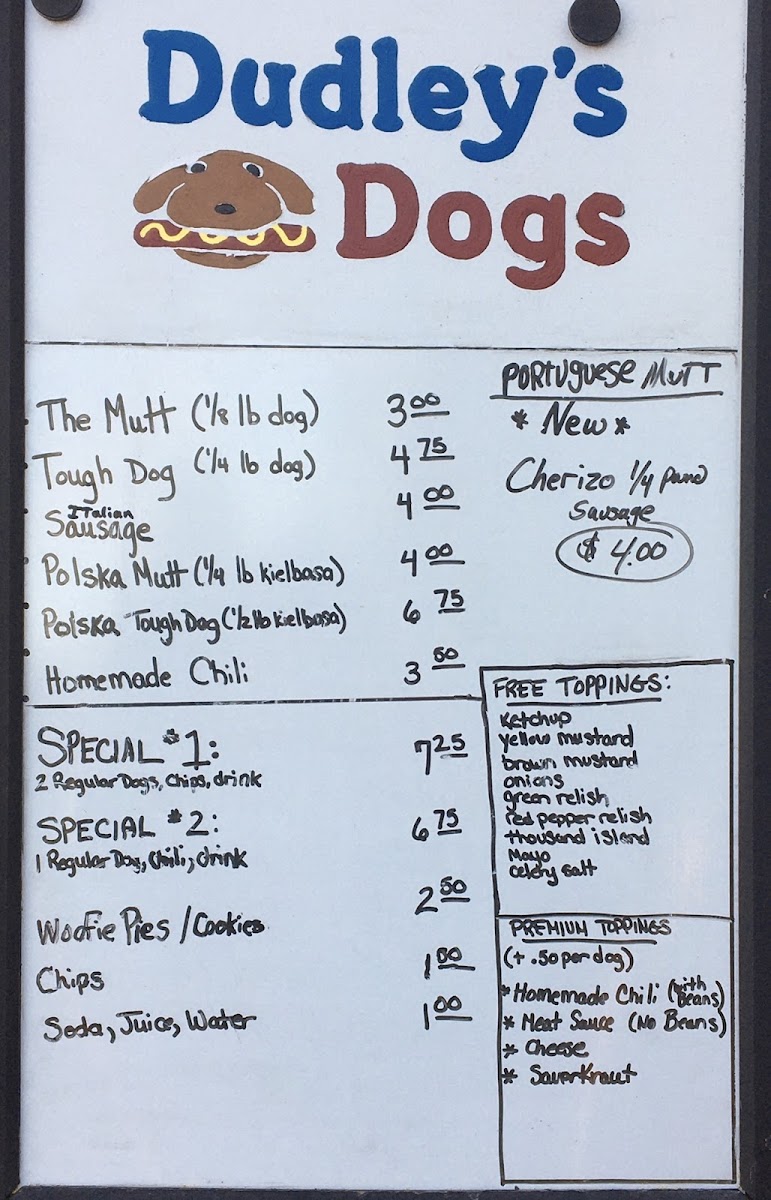 Dudley's
Dogs
The Mutt (1/8 lb dog) 3.00
Tough Dog (1/4 lb dog) 4.75
Italian
Sausage 4.00
Polska Mutt (1/4 lb kielbasa) 4.00
Polska Tough Dog (1/2 lb kielbasa) 6.75
Homemade Chili 3.50
PORTUGUESE MUTT
* New *
Cherizo 1/4 pund
Sausage
$ 4.00
SPECIAL #1: 7.25
2 Regular Dogs, Chips, drink
SPECIAL #2: 6.75
1 Regular Dog, Chili, drink
Woofie Pies / Cookies 2.50
Chips 1.00
Soda, Juice, Water 1.00
FREE TOPPINGS:
Ketchup
yellow mustard
brown mustard
onions
green relish
red pepper relish
thousand island
Mayo
celery salt
PREMIUM TOPPINGS
(+ .50 per dog)
* Homemade Chili (with Beans)
* Meat Sauce (No Beans)
* Cheese
* SauerKraut